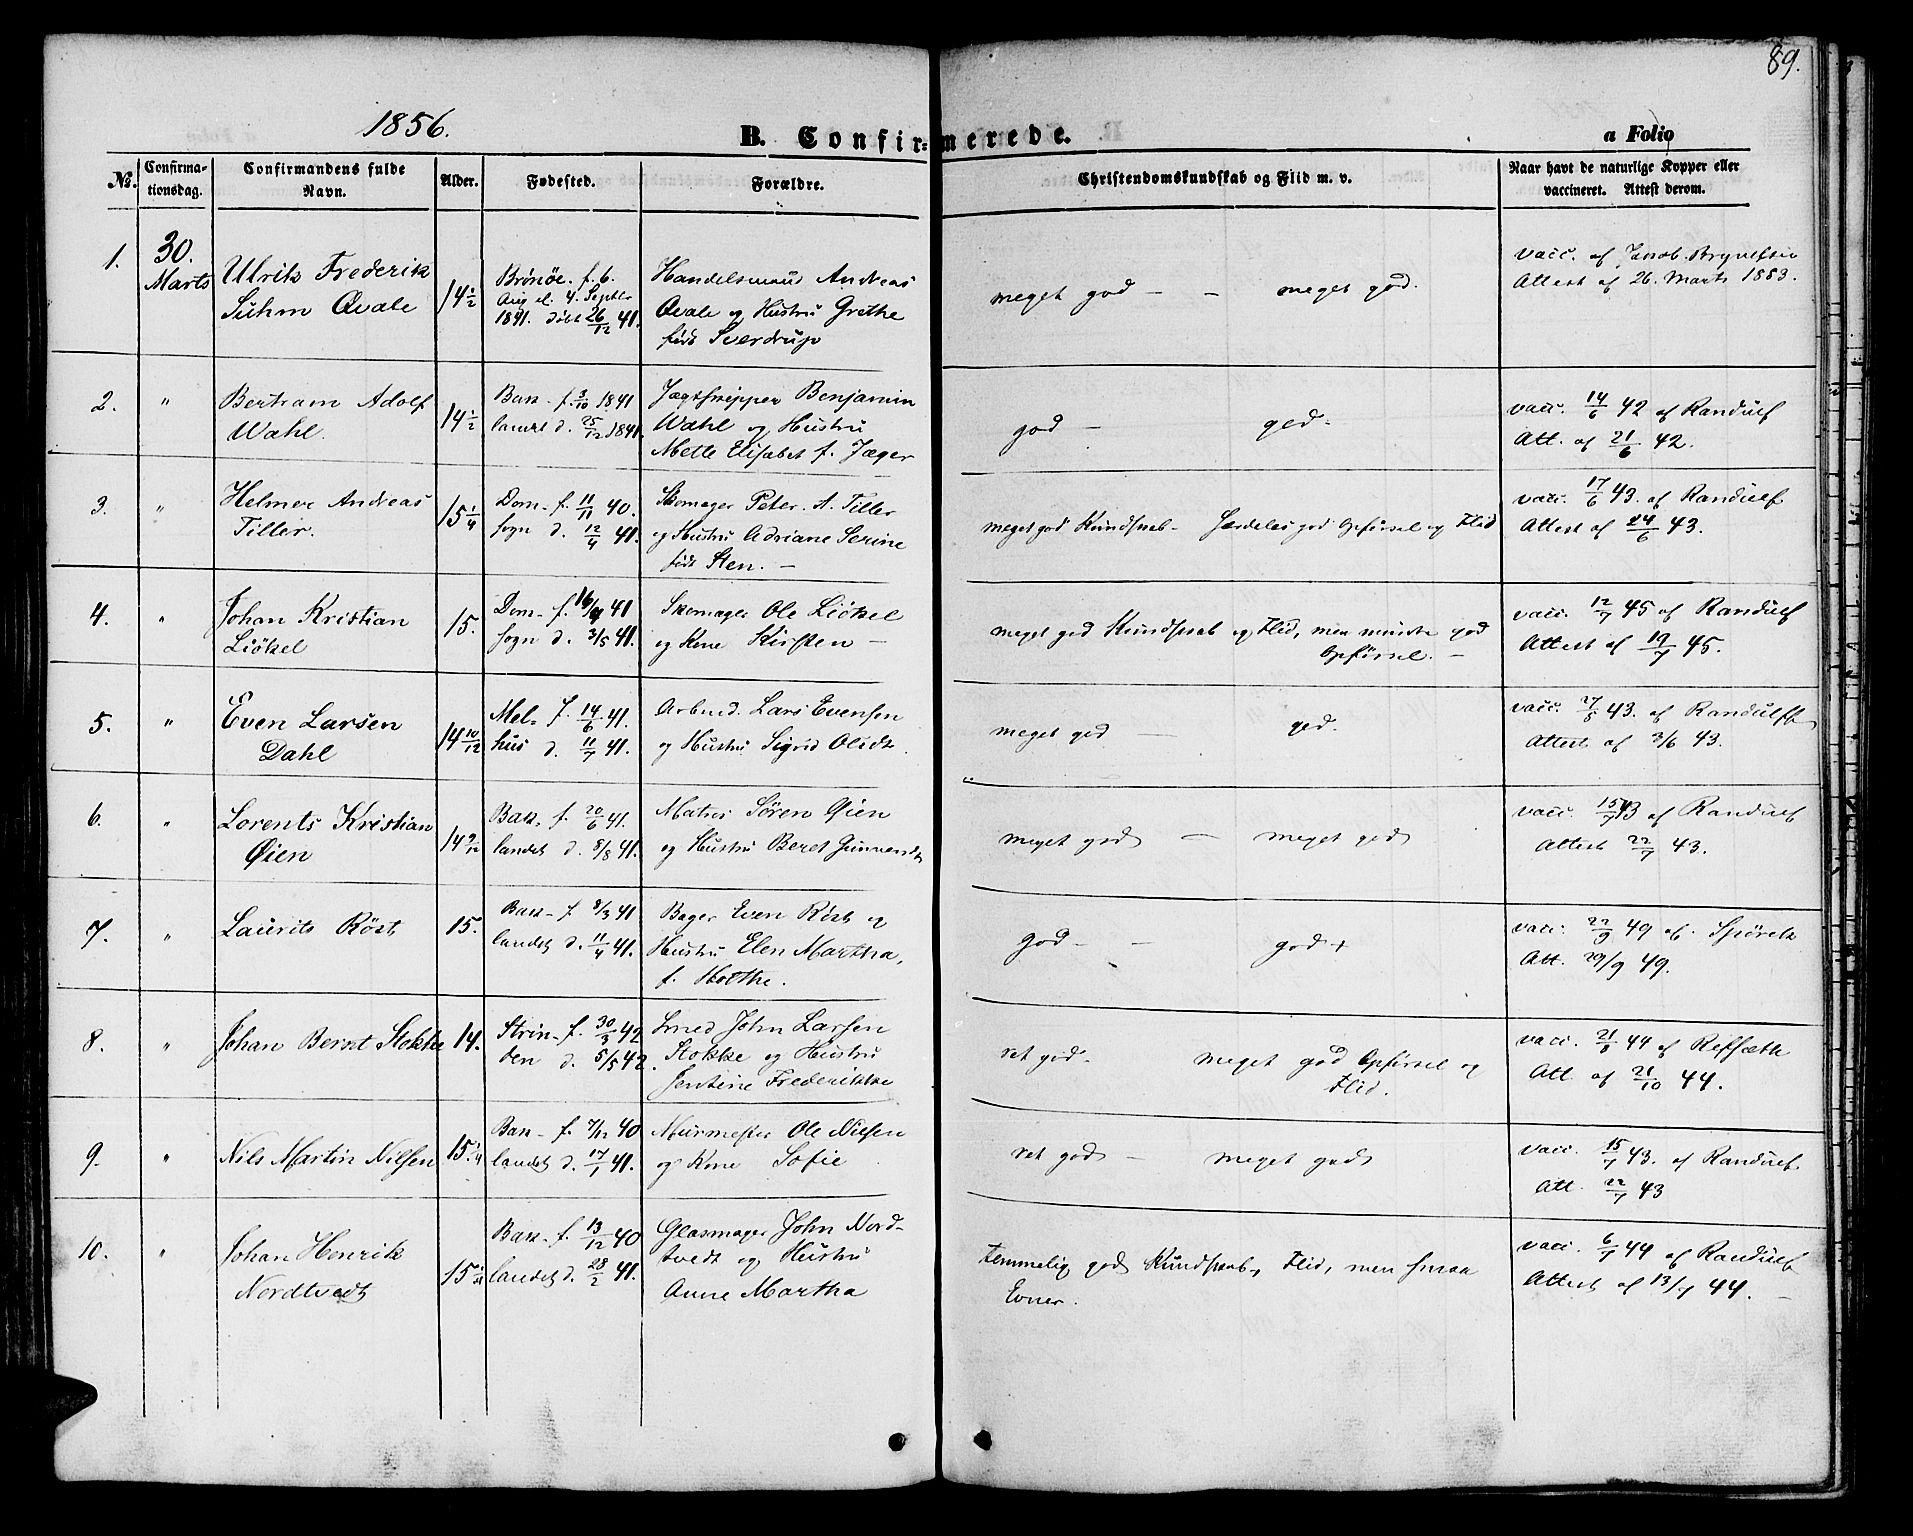 89.
1856.
B. Confir= merede.
a Folio
No.
Confirma-
tionsdag.
Confirmandens fulde
Navn.
Alder.
Fødested.
Forældre.
Christendomskundskab og Flid m. v.
Naar havt de naturlige Kopper eller
vaccineret. Attest derom.
1.
30.
Marts
Ulrik Frederik
Suhm Qvale
14 1/2
Brönöe. f. 6.
Aug el. 4. Septbr
1841. döbt 26/12 41.
Handelsmand Andreas
Qvale og Hustru Grethe
født Sverdrup
meget god - - meget god.
vacc. af Jacob Brynelsen
Attest af 26. Marts 1853.
2.
"
Bertram Adolf
Wahl.
14 1/2
Bak- f. 3/10 1841
landet d. 25/12 1841.
Jægtskipper Benjamin
Wahl og Hustru
Mette Elisabet f. Jæger
god - god.
vacc. 14/6 42 af Randulf
Att. af 21/6 42.
3.
"
Helmer Andreas
Tiller.
15 1/4
Dom- f. 11/11 40.
sogn d. 12/4 41.
Skomager Peter A. Tiller
og Hustru Adriane Serine
født Sten. -
meget god Kundskab - Særdeles god Opförsel og Flid
vacc. 17/6 43. af Randulf
Attest af 24/6 43.
4.
"
Johan Kristian
Liökel
15.
Dom- f. 16/4 41
sogn d. 3/5 41.
Skomager Ole Liökel
og Kone Kirsten -
meget god Kundskab og Flid, men mindre god
Opförsel. -
vacc. 12/7 45 af Randulf
Attest af 19/7 45.
5.
"
Even Larsen
Dahl
14 10/12
Mel- f. 14/6 41.
hus d. 11/7 41.
Arbmd. Lars Evensen
og Hustru Sigrid Olsdt.
meget god - god.
vacc. 27/5 43. af Randulf
Attest af 3/6 43.
6.
"
Lorents Kristian
Øien
14 9/12
Bak- f. 20/6 41.
landet d. 8/8 41.
Matros Sören Øien
og Hustru Beret Gunnarsdt
meget god - meget god
vacc. 15/7 43 af Randulf
Attest 22/7 43.
7.
"
Laurits Röst
15.
Bak- f. 8/3 41
landet d. 11/4 41.
Bager Even Röst og
Hustru Elen Martha,
f. Holthe.
god - - god
vacc. 22/9 49 af Spörck
Att. 29/9 49.
8.
"
Johan Bernt Stokke
14.
Strin- f. 30/3 42
den d. 5/5 42.
Smed John Larsen
Stokke og Hustru
Jentine Frederikke
ret god - meget god Opförsel og
Flid.
vacc. 21/8 44 af
Att. af 21/10 44.
9.
"
Nils Martin Nilsen
15 1/4
Bak- f. 7/12 40
landet d. 17/1 41.
Murmester Ole Nilsen
og Kone Sofie
ret god - meget god
vacc. 15/7 43. af Randulf
Att. 22/7 43
10.
"
Johan Henrik
Nordtvedt
15 1/4
Bak- f. 13/12 40
landet d. 28/2 41.
Glasmager John Nord-
tvedt og Hustru
Anne Martha
temmelig god Kundskab, Flid, men smaa
Evner.
vacc. 6/7 44 af Randulf
Attest af 13/7 44. -